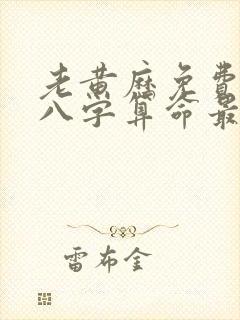 老黄历免费
八字算命最
雷布金